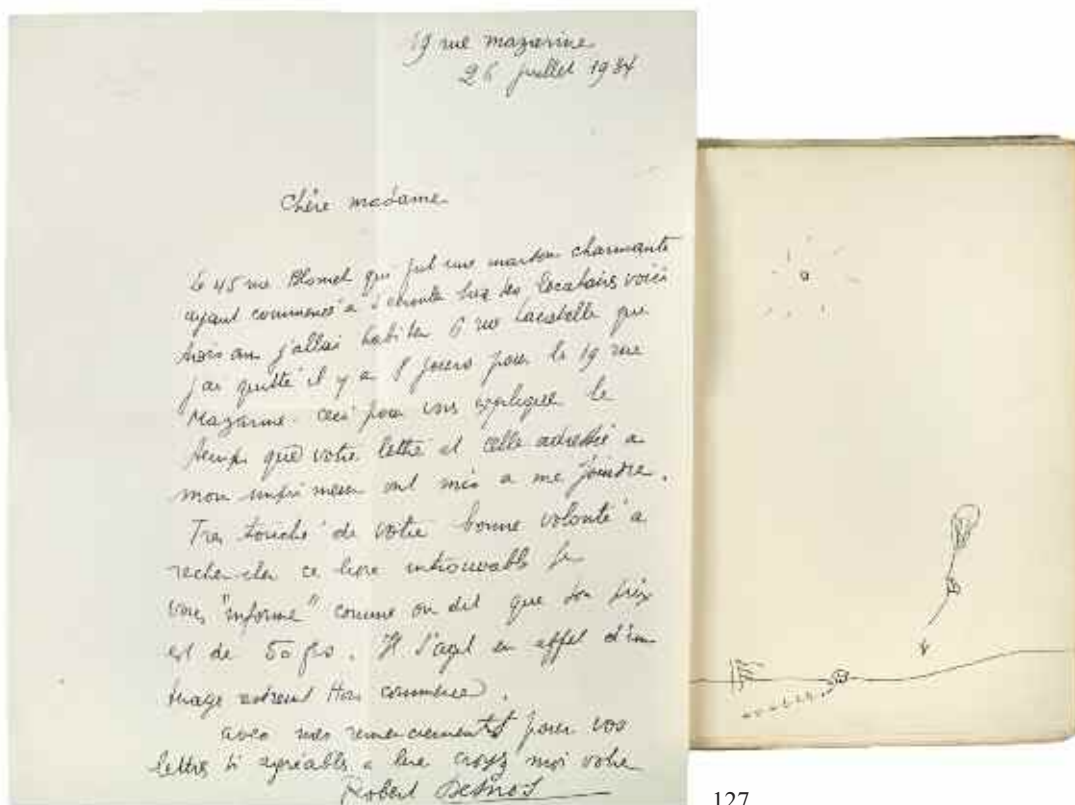 19 rue mazarine
26 juillet 1934
Chère madame
Le 45 rue Blomet qui fut une maison charmante
ayant commencé a s'écrouler sur ses locataires voici
trois ans j'allai habiter 6 rue Lacretelle que
j'ai quitté il y a 8 jours pour le 19 rue
Mazarine. Ceci pour vous expliquer le
temps que votre lettre et celle adressée a
mon imprimeur ont mis a me joindre.
Tres touché de votre bonne volonté a
rechercher ce livre introuvable je
vous "informe" comme on dit que son prix
est de 50 frs. Il s'agit en effet d'un
tirage restreint Hors commerce.
avec mes remerciements pour vos
lettres si agréables a lire croyez moi votre
Robert Desnos
127